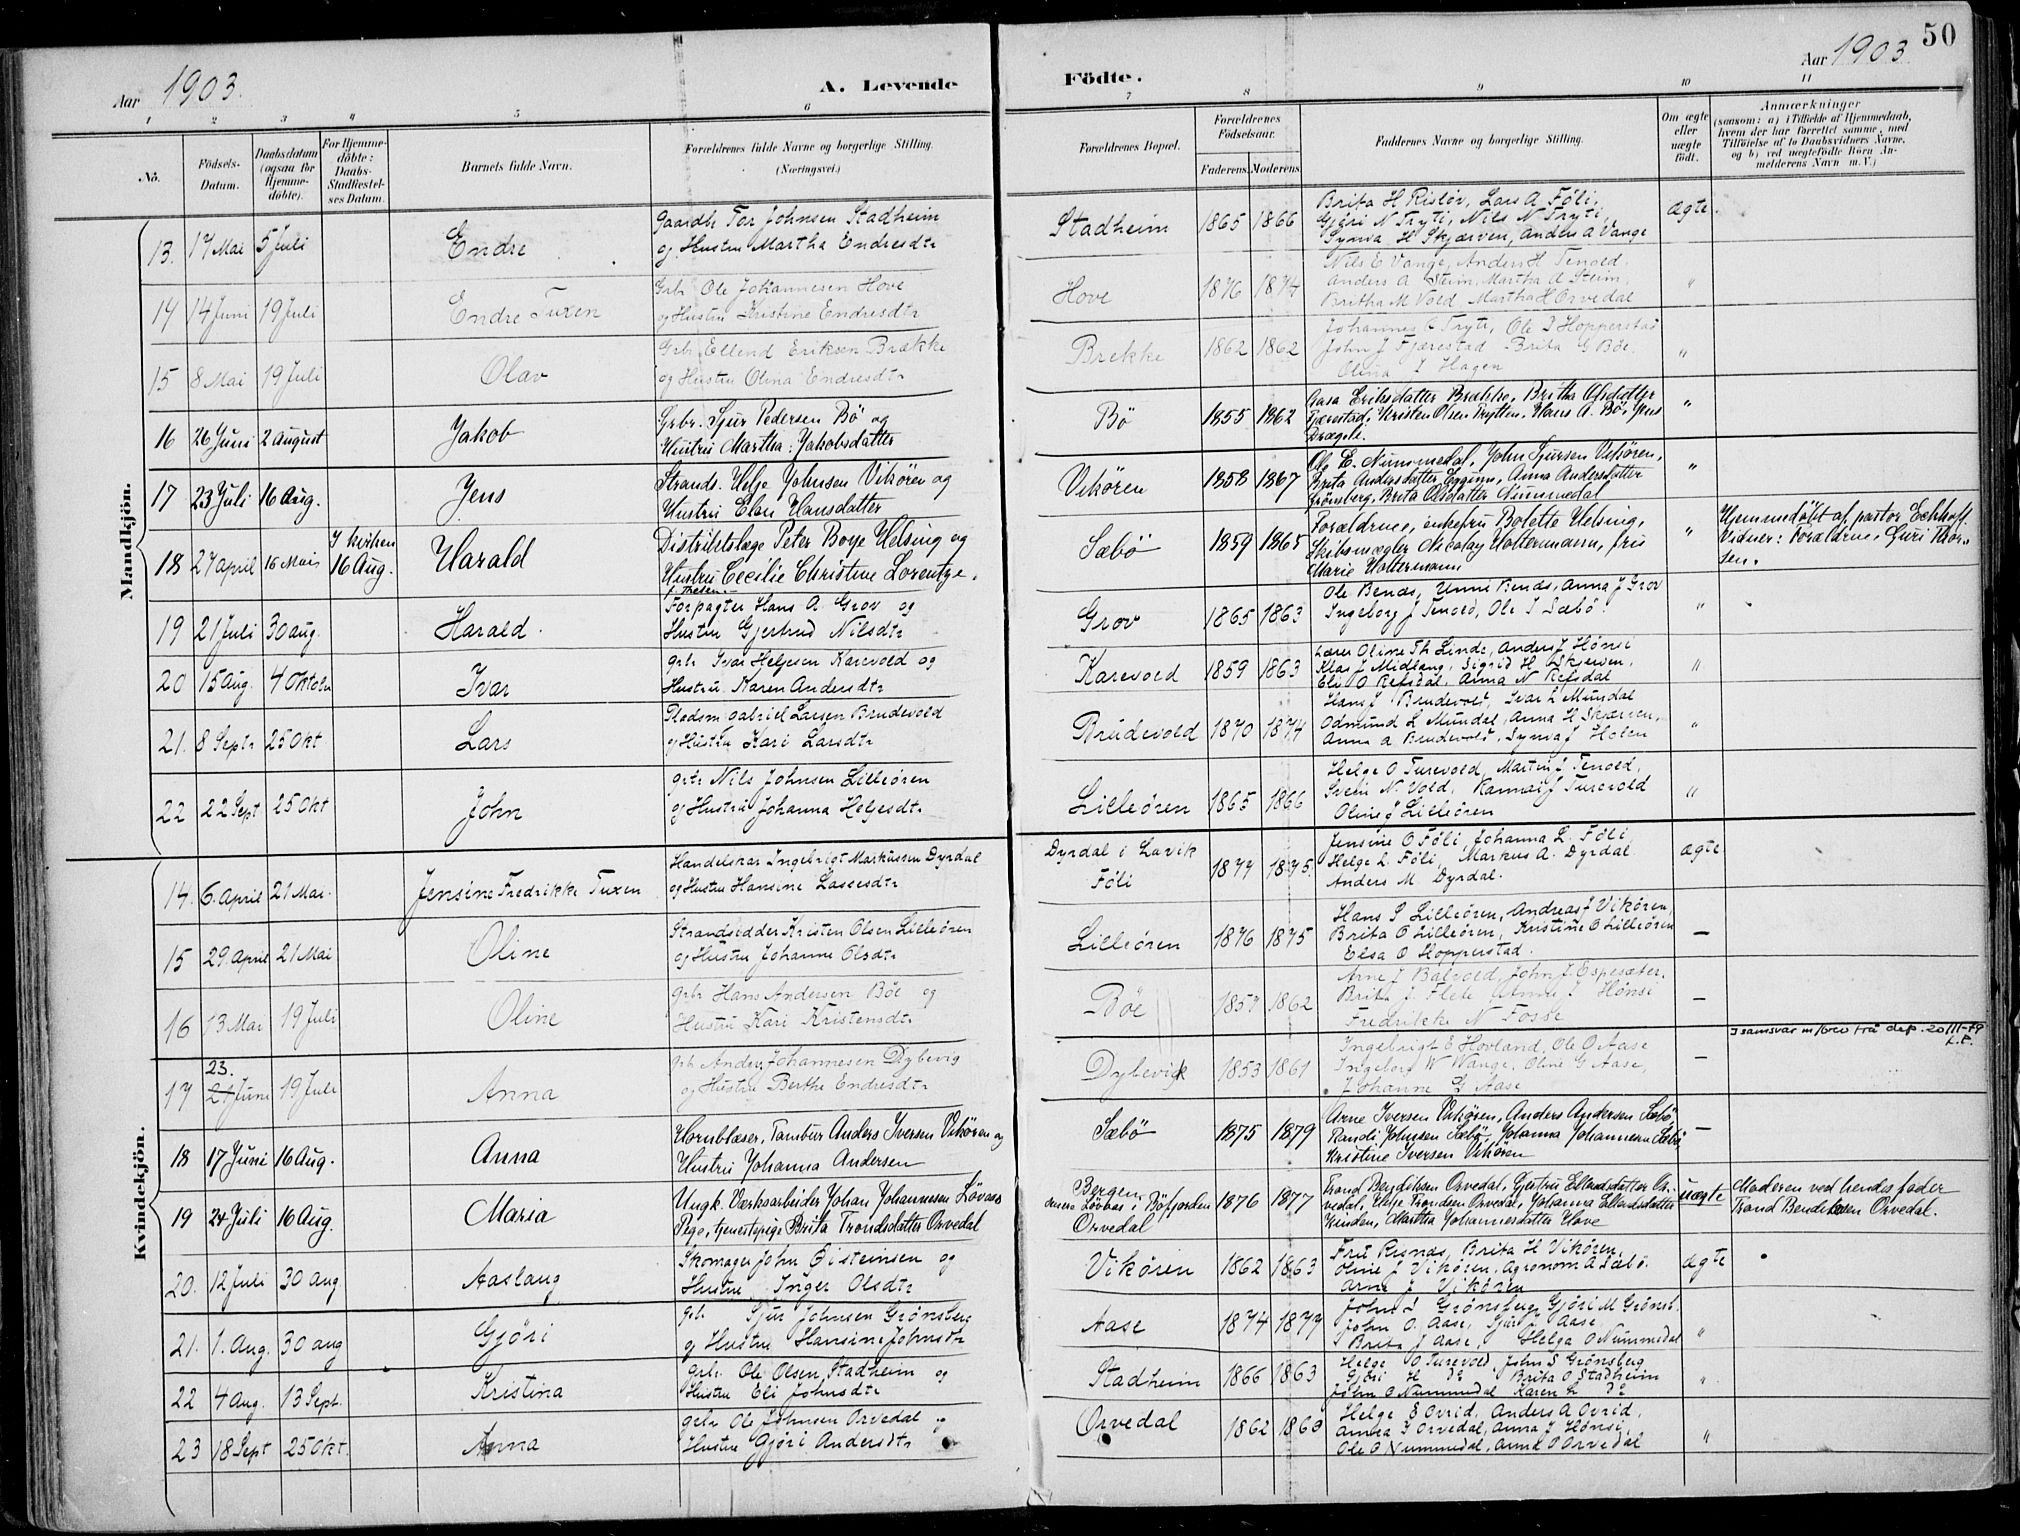 50
Aar 1903.
A. Levende
Födte.
Aar 1903.
1 2 3 4 5 6 7 8 9 10 11
No.
Födsels-Datum.
Daabsdatum (ogsaa for Hjemmedöbte).
For Hjemmedöbte: Daabs-Stadfæstelses Datum.
Barnets fulde Navn.
Forældrenes fulde Navne og borgerlige Stilling. (Næringsvei.)
Forældrenes Bopæl.
Forældrenes Födselsaar.
Faderens. Moderens.
Faddernes Navne og borgerlige Stilling.
Om ægte eller uægte födt.
Anmærkninger
(saasom: a) i Tilfælde af Hjemmedaab, hvem der har forrettet samme, med Tilföielse af to Daabsvidners Navne, og b) ved uægtefödte Börn Anmelderens Navn m. V.)
Mandkjön.
13. 17 Mai 5 Juli Endre Gaardbr Tor Johnsen Stadheim
og Hustru Martha Endresdtr
Stadheim 1865 1866 Brita H Risløv, Lars A Föli,
Gjöri N Tryti, Nils N Tryti,
Synva H Skjærven, Anders A Vange
ægte.
14 14 Juni 19 Juli Endre Tuxen Grbr Ole Johannesen Hove
og Hustru Kristine Endresdtr
Hove 1876 1874 Nils E Vange, Anders H Tenold,
Anders A Steim, Martha A Steim,
Britha M Vold, Martha H Orvedal
"
15 8 Mai 19 Juli Olav Grbr Ellend Eriksen Brække
og Hustru Olina Endresdtr
Brekke 1862 1862 Johannes Tryti, Ole I Hopperstad
John J Fjærestad Brita G Böe.
Olina I Hagen
"
16 26 Juni 2 August Jakob Grbr. Sjur Pedersen Bö og
Hustru Martha Jakobsdatter
Bö 1855 1862 Aasa Eriksdatter Brække, Britha Olsdatter
Fjærestad, Kristen Olsen Trytten, Hans A. Bö, Jens
Drægeli.
"
17 23 Juli 16 Aug. Jens Strands. Helje Johnsen Vikören og
Hustru Elen Hansdatter
Vikören 1858 1867 Ole E. Nummedal, John Sjursen Vikören,
Brita Andersdatter Eggum, Anna Andersdatter
Grönsberg, Brita Olsdatter Nummedal
"
18 27 April 16 Mai I kirken 16 Aug. Harald Distriktslæge Peter Borje Helsing og
Hustru Cecilie Christine Lorentze,
f. Thesen.
Sæbö 1859 1865 Forældrene, enkefru Bolette Helsing,
Skibsmægler Nicolay Holtermann, frk
Marie Holtermann
" Hjemmedöbt af pastor Eckhoff.
Vidner: Forældrene, Guri Thor-
sen.
19 21 Juli 30 aug. Harald. Forpagter Hans A. Grov og
Hustru Gjertrud Nilsdtr
Grov 1865 1863 Ole Bends, Unni Bends, Anna J Grov
Ingeborg J Tenold, Ole I Sæbö
"
20 15 Aug. 4 Oktobr Ivar grbr Ivar Heljesen Karevold og
Hustru Karen Andersdtr
Karevold 1859 1863 Lærer Oline Th Linde, Anders J Hönsi
Klas J Midlang, Sigrid H Skjerven,
Eli O Refsdal, Anna N Refsdal
"
21. 8 Septr 25 Okt Lars Pladsm Gabriel Larsen Brudevold
og Hustru Kari Larsdtr
Brudevold 1870 1874 Hans J Brudevold, Ivar L Mundal
Odmund L Mundal, Anna H Skjærven,
Anna A Brudevold, Synva J Holen
"
22 22 Sept 25 Okt John grbr Nils Johnsen Lilleören
og Hustru Johanna Heljesdtr
Lilleören 1865 1866 Helge O Turevold, Martin I Tenold,
Svein N Vold, Rannei J Turevold
Oline J Lilleören
"
Kvindekjön.
14. 6. April 21 Mai. Jensine Fredrikke Tuxen Handelskar Ingebrigt Markussen Dyrdal
og Hustru Hansine Lassesdtr
Dyrdal i Lavik
Föli 1877 1875. Jensine O Föli, Johanna L. Föli
Helge L Föli, Markus A. Dyrdal
Anders M Dyrdal.
ægte
15 29. April 21 Mai Oline Strandsidder Kristen Olsen Lilleören
og Hustru Johanne Olsdtr
Lilleören 1876 1875 Hans S Lilleören, Andreas J Vikören,
Brita O Lilleören, Kristine O Lilleören
Elsa O Hopperstad.
—
16 13 Mai 19 Juli Oline grbr Hans Andersen Böe og
Hustru Kari Kristensdtr
Böe 1857 1862 Arne J Balvold, John J. Espesæter,
Brita J Flete, Anna J Hönsi
Fredrikke N Fosse
—
17 23. 21 Juni 19 Juli Anna grb Anders Johannesen Dybevig
og Hustru Berthe Endresdtr
Dybevick 1853 1861 Ingebrigt E Hovland, Ole O Aase
Ingeborg W Wange, Oline G Aase,
Johanne G Aase
— I samsvar m/brev frå dep. 20/III-79
L.P.
18 17 Juni 16 Aug. Anna Hornblæser, Tambur Anders Iversen Vikören og
Hustru Johanna Andersen
Sæbö 1875 1879 Arne Iversen Vikören, Anders Andersen Sæbö,
Randi Johnsen Sæbö, Johanna Johannesen Sæbö,
Kristine Iversen Vikören
—
19 24 Juli 16 Aug. Maria Ungk. Værksarbeider Johan Johannesen Lövaas
Pige, tjenestepige Brita Trondsdatter Orvedal
Bergen,
Orvedal 1876 1877 Trond Bendiksen Orvedal, Gjertrud Ellendsdatter Or-
vedal, Helje Trondsen Orvedal, Johanna Ellendsdatter
Hunden, Martha Johannesdatter Hove
uægte Moderen ved hendes fader
Trond Bendiksen Orvedal.
20. 12 Juli 30 aug Aaslaug Skomager John Öisteinsen og
Hustru Inger Olsdtr
Vikören 1862 1863 Fru Risnæs, Brita H Vikören,
Oline J Vikören, Agronom A Sæbö.
Arne J Vikören
ægte
21. 1. Aug. 30 aug Gjöri grbr Sjur Johnsen Grönsberg
og Hustru Hansine Johnsdtr
Aase 1874 1877 John S Grönsberg, Gjöri M Grönsb.
John O. Aase, Sjur J Aase,
Brita J Aase, Helga O Nummedal
"
22 4 Aug. 13 Sept. Kristina grbr. Ole Olsen Stadheim og
Hustru Eli Johnsdtr
Stadheim 1866 1863 Helge O Turevold, John S Grönsberg
Gjöri H do Brita O Stadheim
John O Nummedal Karen L do
"
23 18 Sept 25 Okt. Anna grbr Ole Johnsen Orvedal og
Hustru Gjöri Andersdtr
Orvedal 1862 1863 Helge E Ovrid, Anders A Ovrid,
Anna I Orvedal, Anna J Hönsi,
Ole O Nummedal, Anne O Orvedal
"